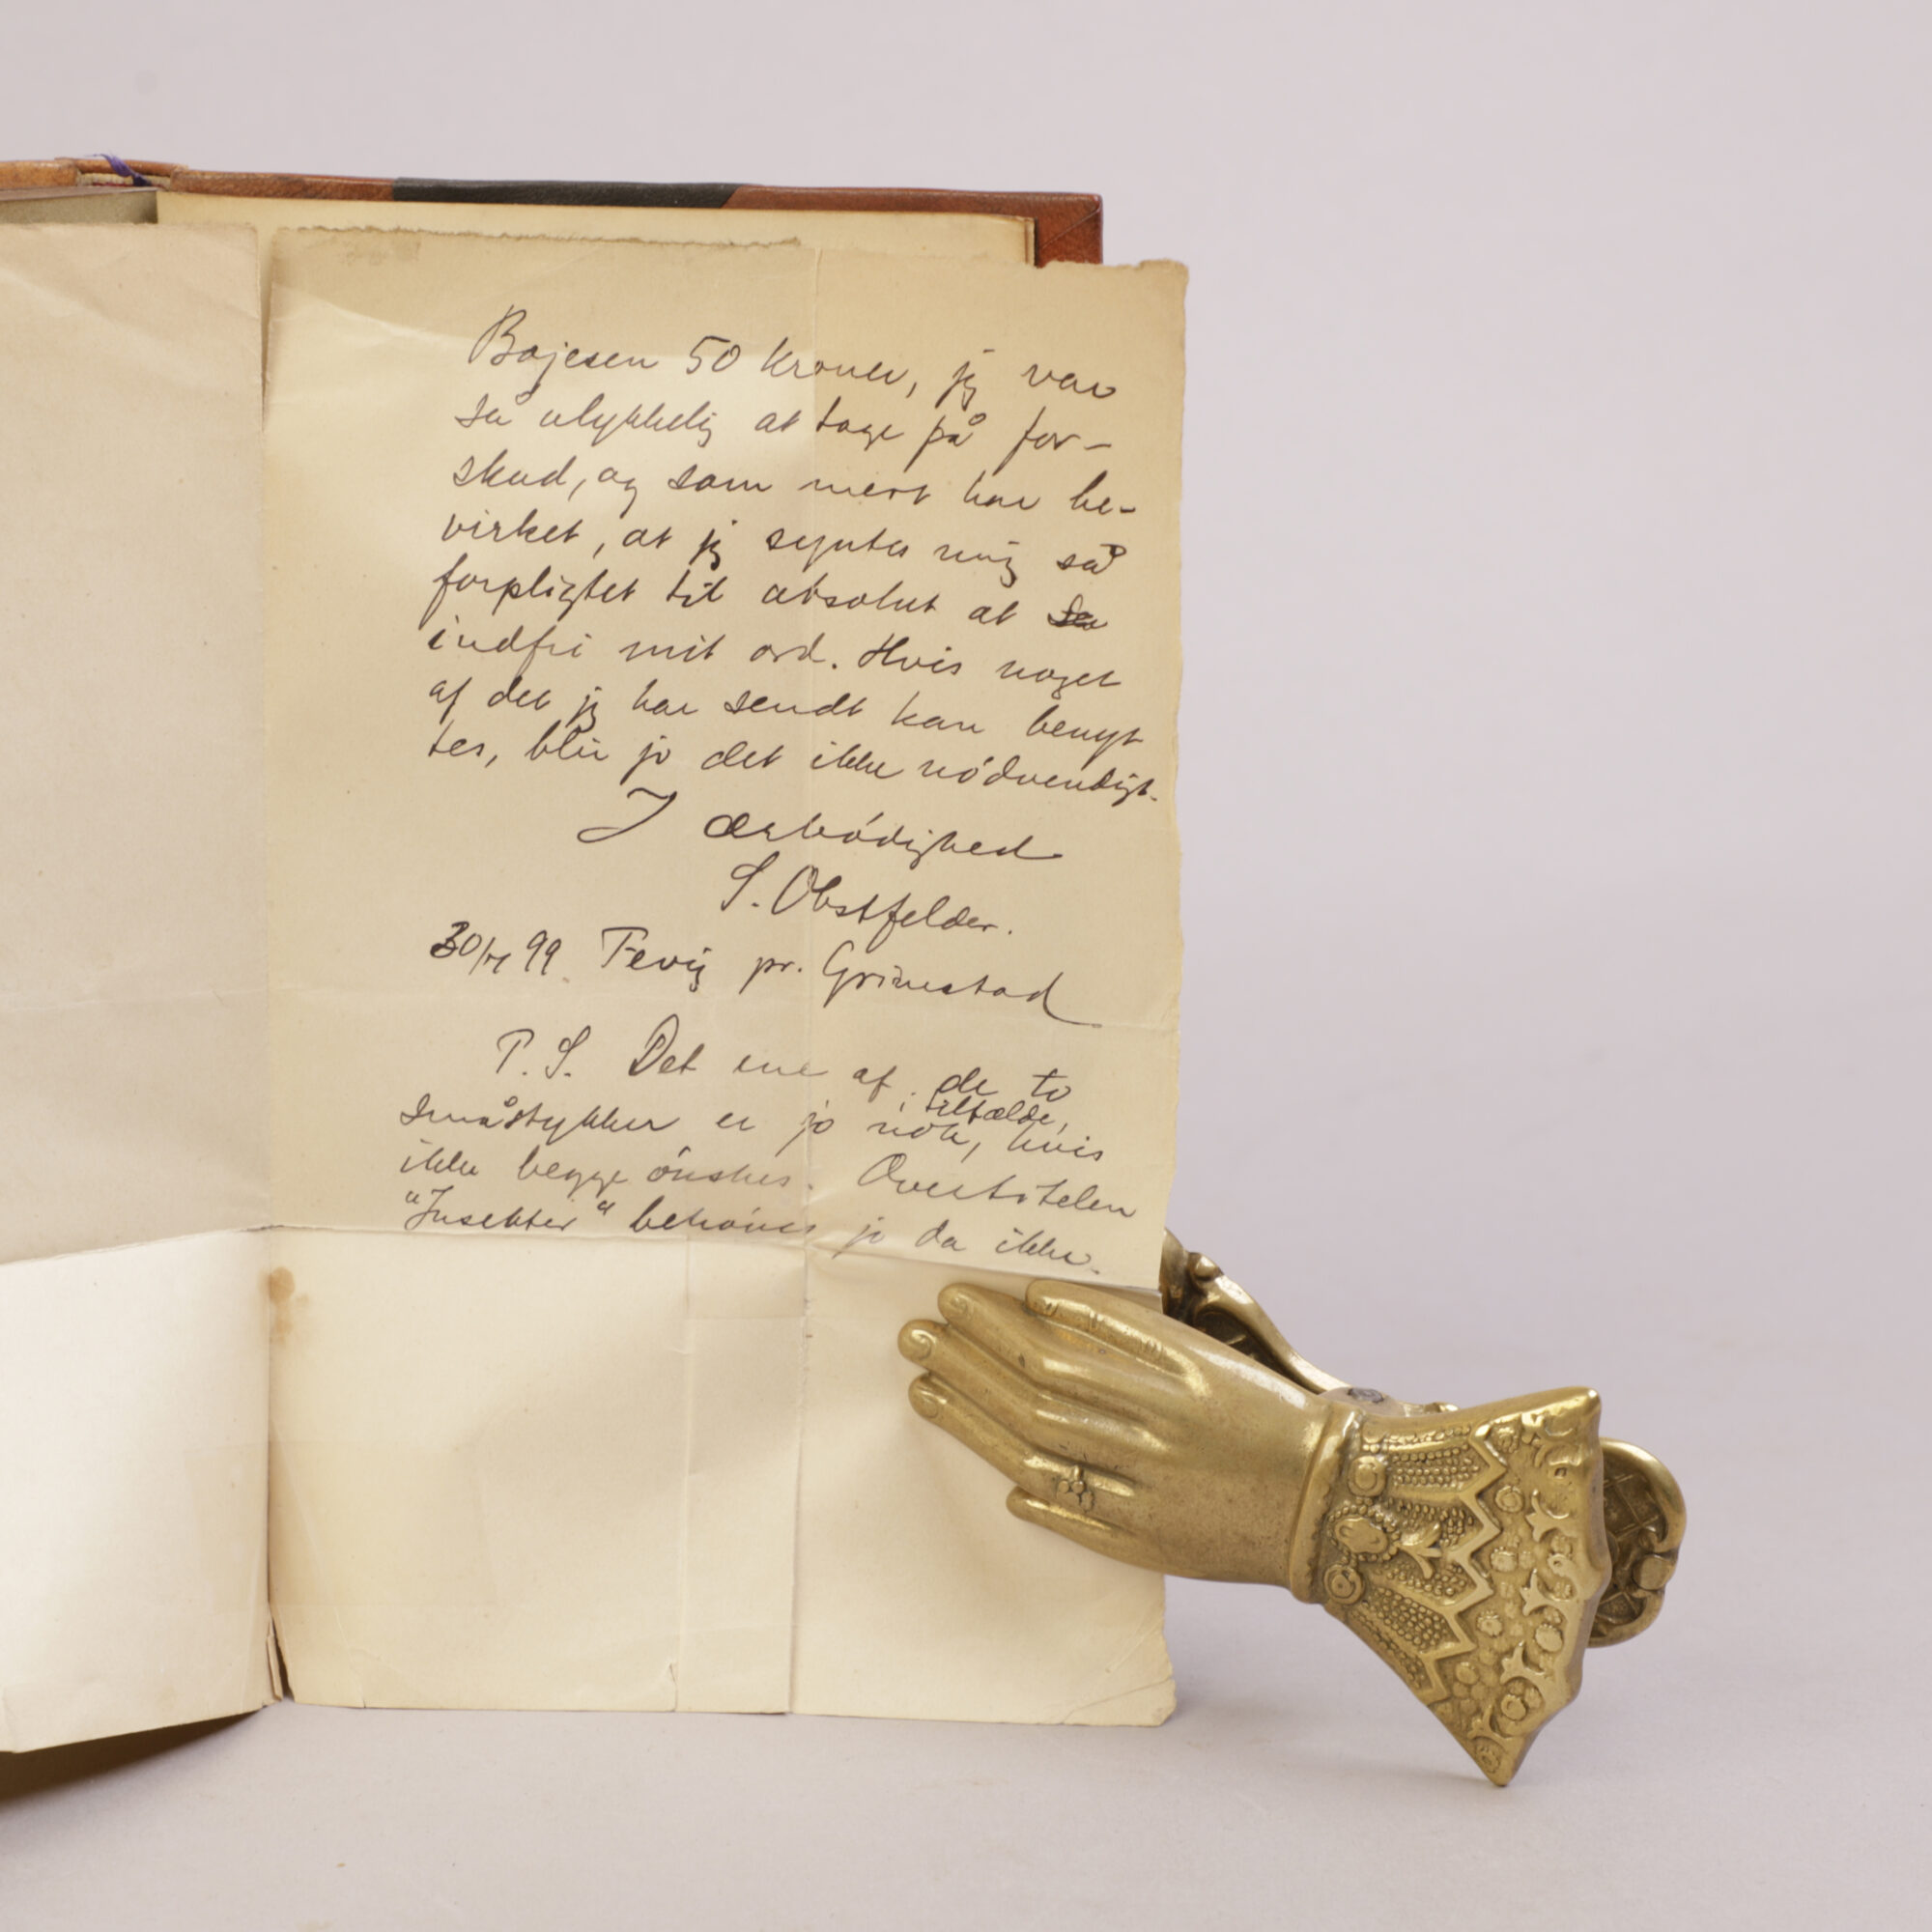 Bojesen 50 Kroner, jeg var
så ulykkelig at tage på for-
skud, og som mest har be-
virket, at jeg syntes mig så
forpligtet til absolut at
indfri mit ord. Hvis noget
af det jeg har sendt kan benyt
tes, blir jo det ikke nödvendigt.
I ærbödighed
S. Obstfelder.
30/ 99 Fevig pr. Grimstad
P. S. Det ene af de to
småstykker er jo i tilfælde, nok, hvis
ikke begge önskes. Overtitelen
"Insekter" behöves jo da ikke.